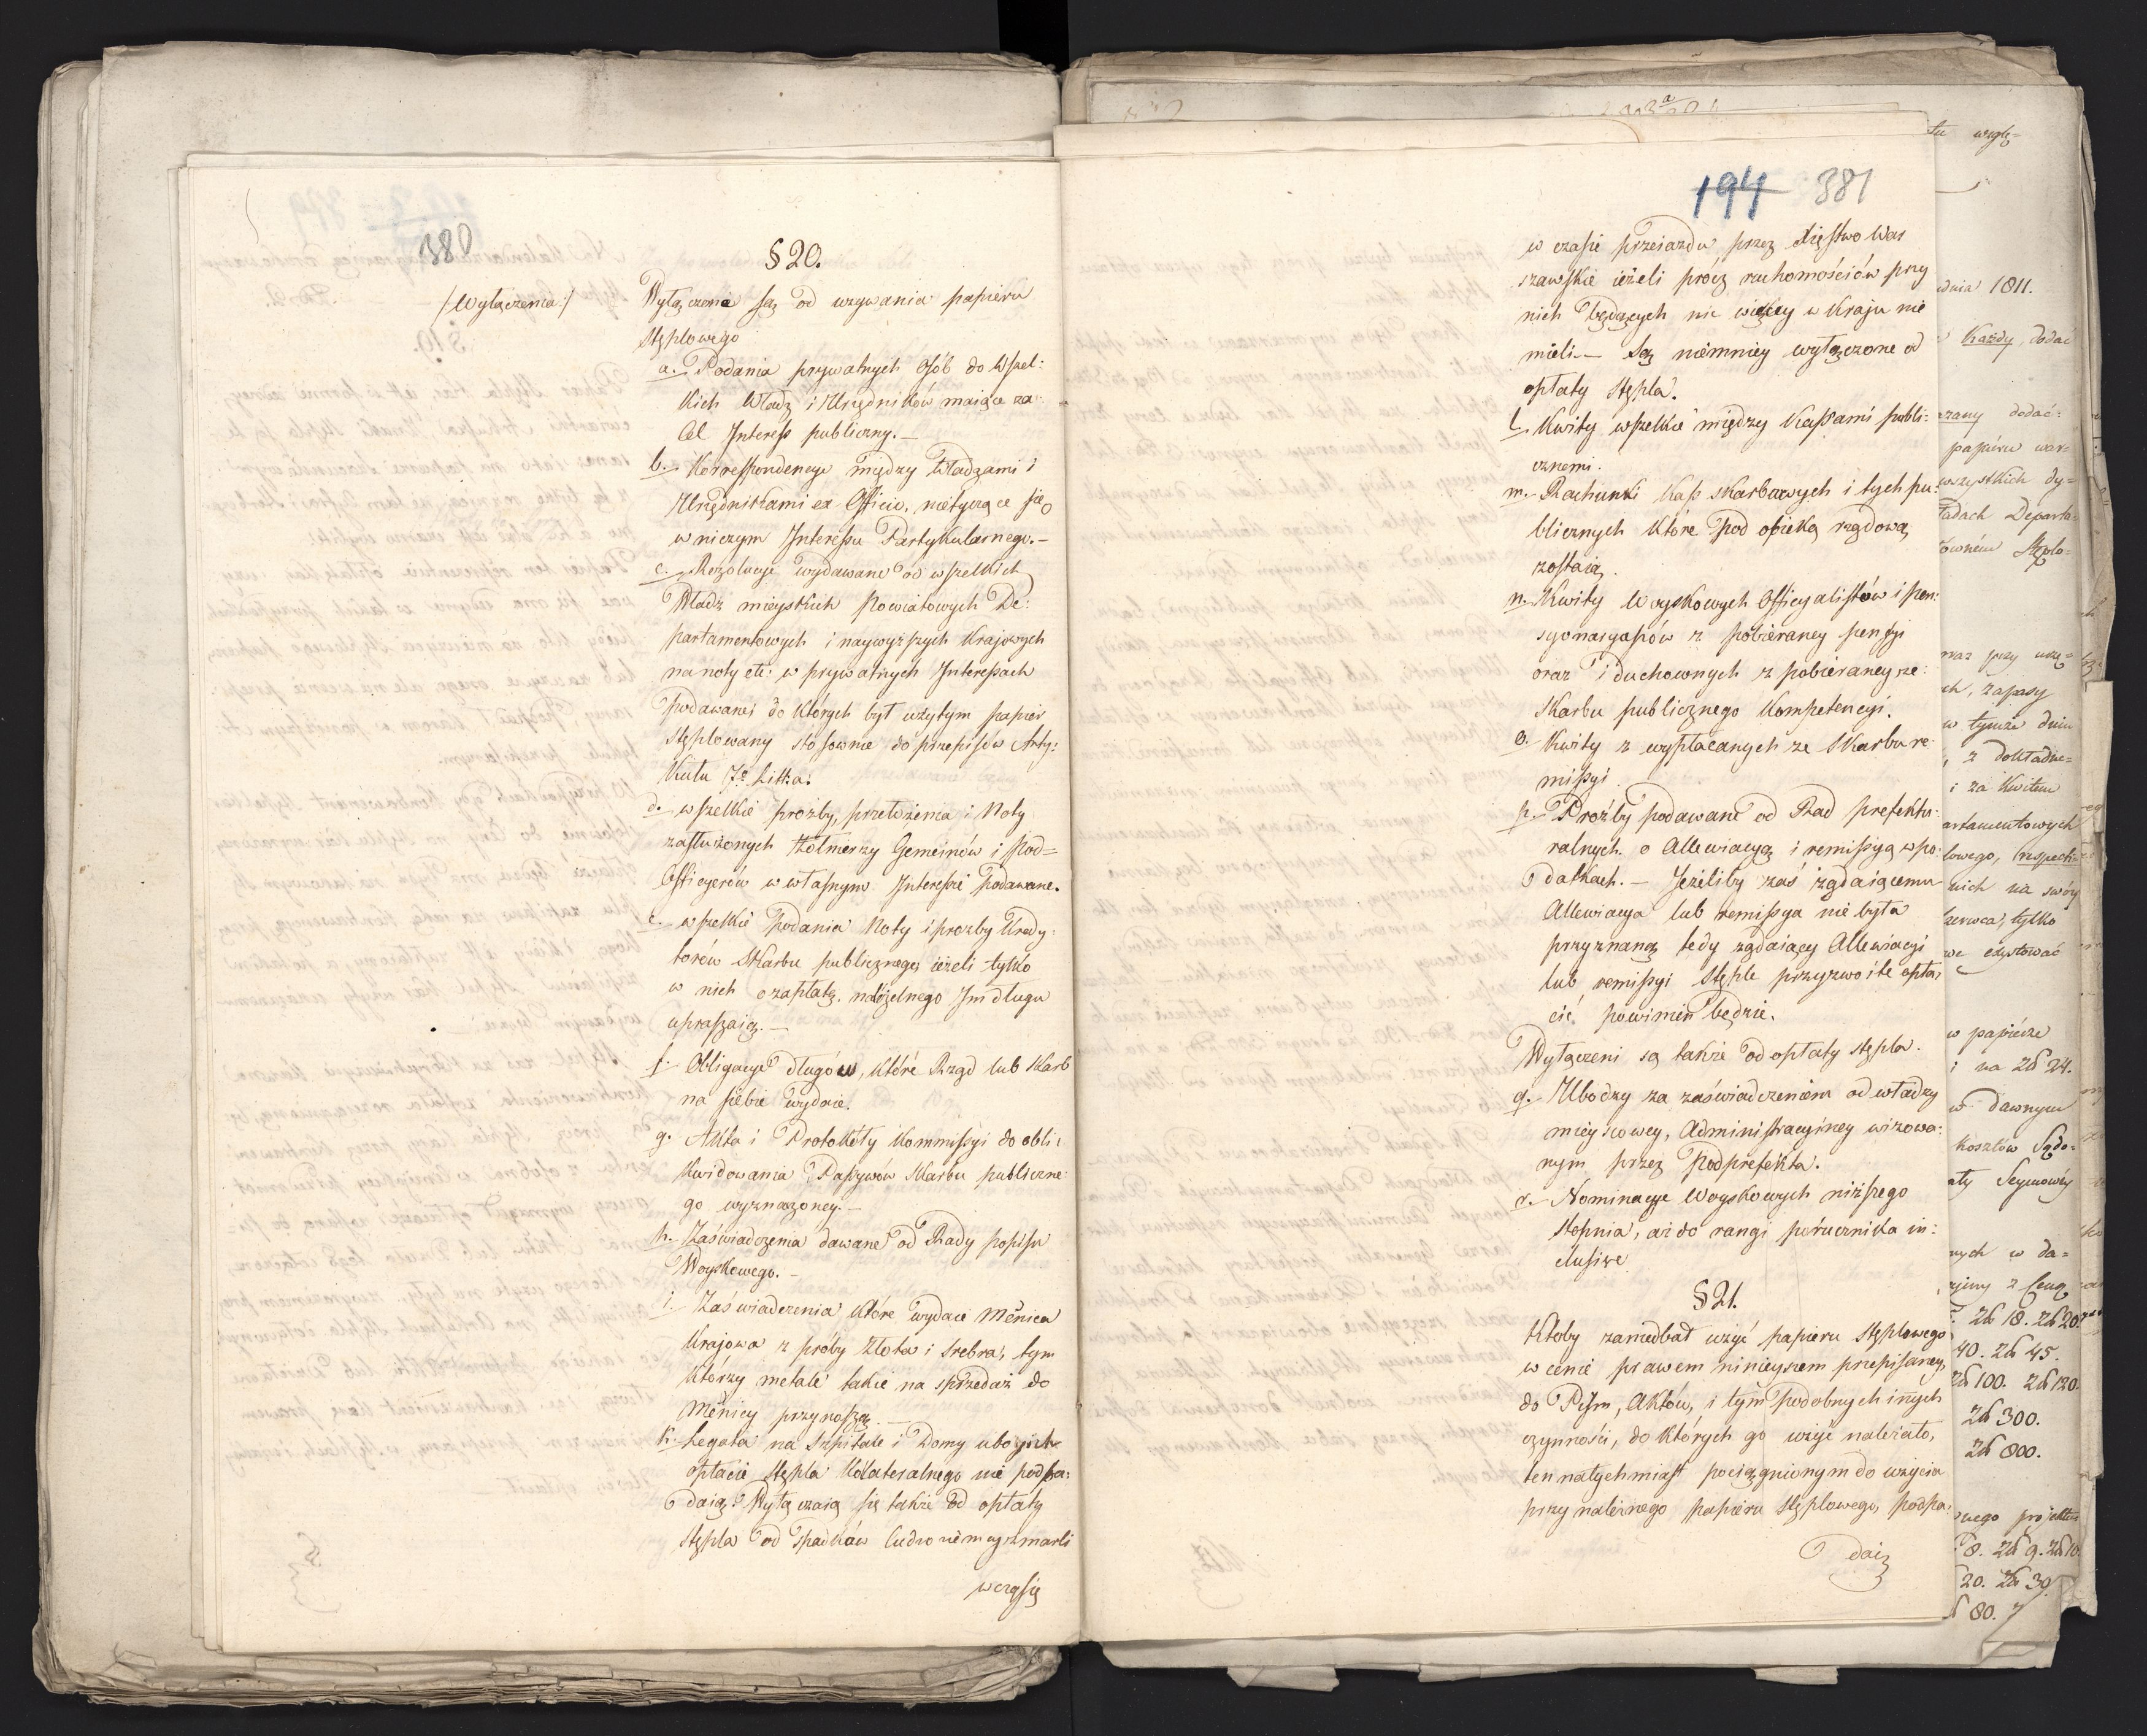 380
§ 20.
/:Wyłączenia:/
Wyłączone są od wzywania papieru
Stęplowego
a. Podania prywatnych Osób do Wszel:
kich Władz i Urzędników maiące za:
Cel Interess publiczny.—
b. Korrespondencye między Władzami i
Urzędnikami ex Officio, nietyczące się
w niczym Interessu Partykularnego.—
c. Rezolucye wydawane od wszelkich
Władz mieyskich Powiatowych De:
partamentowych i naywyższych Krajowych
na noty etc: w prywatnych Interessach
podawane, do których był użytym papier
stęplowany stosownie do przepisów Arty:
kułu 7º Litt: a:
d. wszelkie prozby, przełożenia i Noty
zasłużonych Żołnierzy Gemeinów i Pod=
Officyerów w własnym Interessie podawane.
e. wszelkie Podania Noty i prozby Kredy:
torów Skarbu publicznego, ieżeli tylko
w nich o zapłatę należnego Im długu
upraszaią.—
f. Obligacye długów, które Rząd lub Skarb
na siebie wydaie.
g. Akta i Protokóły Kommissyi do obli:
kwidowania Passywów Skarbu publiczne:
go wyznaczoney.—
h. Zaświadczenia dawane od Rady popisu
Woyskowego.—
i. Zaświadczenia które wydaie Mennica
Krajowa z próby Złota i srebra, tym
którzy metale takie na sprzedaż do
Mennicy przynoszą.—
k. Legata na Szpitale i Domy ubogich
opłacie Stępla Kollateralnego nie podpa:
daią. Wyłączaią się także od opłaty
stępla od Spadków ludzie niemaiący zmarli
w czasie
194 381
w czasie przeiazdu przez Xięstwo War
szawskie ieżeli prócz ruchomościów przy
nich będących nic więcey w Kraju nie
mieli.— Są niemniey wyłączone od
opłaty stępla.
l. Kwity wszelkie między Kassami publi:
cznemi.
m. Rachunki Kass skarbowych i tych pu:
blicznych które pod opieką rządową
zostaią.
n. Kwity Woyskowych Officyalistów i pen:
syonaryuszów z pobieraney pensyi
oraz i duchownych z pobieraney ze
Skarbu publicznego Kompetencyi.
o. Kwity z wypłacanych ze Skarbu re:
missyi
p. Prozby podawane od Rad prefektu:
ralnych o Allewiacyą i remissyą w po:
datkach.— Jeżeliby zaś żądaiącemu
Allewiacya lub remissya nie była
przyznaną, tedy żądaiący Allewiacyi
lub remissyi Stęple przyzwoite opła:
cić powinien będzie.
Wyłączeni są także od opłaty stępla.
q. Ubodzy za zaświadczeniem od władzy
mieyscowey, Administracyiney wizowa:
nym przez Podprefekta.
r. Nominacye Woyskowych niższego
stopnia, aż do rangi porucznika in:
clusive
§ 21.
Ktoby zaniedbał użyć papieru Stęplowego
w cenie prawem ninieyszem przepisaney,
do Pism, Aktów, i tym podobnych innych
czynności, do których go użyć należało,
ten natychmiast pociągnionym do użycia
przynależnego papieru stęplowego, podpa:
daią
wzglę=
dnia 1811.
Każdy, dodać
dodać:
papiéru war=
wszystkich dy=
Departa=
Stęplo=
przy
zapasy
w tymże dniu
z dokładne=
i za kwitem
artamentowych
nich na swóy
czerwca, tylko
w papiérze
i na zł 24.
w dawnym
kosztów Sądo=
Seymowéy
w da=
zł 18. zł 20.
40. zł 45.
zł 100. zł 120.
zł 300.
zł 800.
projektu
8. zł 9. zł 10.
20. zł 30.
80.